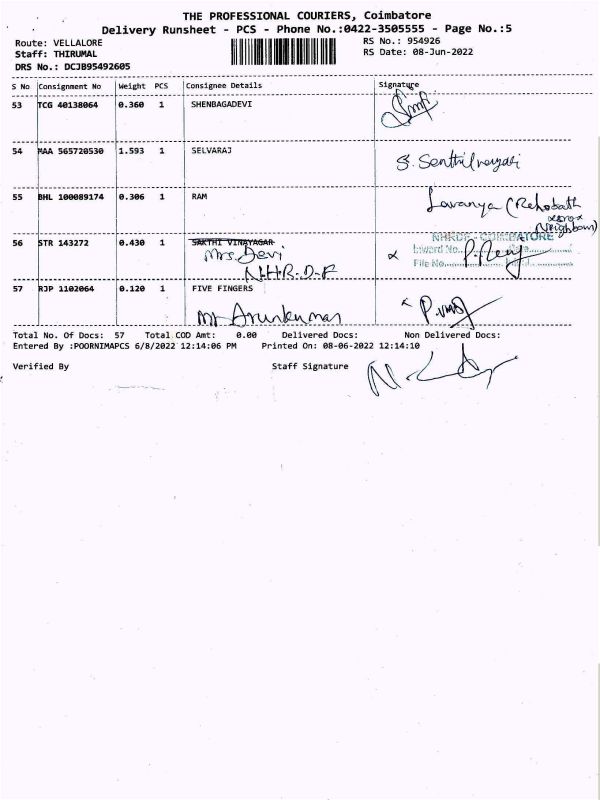 THE PROFESSIONAL COURIERS, Coimbatore
Delivery Runsheet - PCS - Phone No.:0422-3505555 - Page No.:5
Route: VELLALORE RS No.: 954926
Staff: THIRUMAL RS Date: 08-Jun-2022
DRS No.: DCJB95492605
S No Consignment No Weight PCS Consignee Details Signature
53 TCG 40138064 0.360 1 SHENBAGADEVI
54 MAA 565720530 1.593 1 SELVARAJ
55 BHL 100089174 0.306 1 RAM Lavanya (Rehobath
xerox
Neighbour)
56 STR 143272 0.430 1 SAKTHI VINAYAGAR NHRDF - COIMBATORE
Mrs. Devi Inward No.
N.H.R.D.F File No.
57 RJP 1102064 0.120 1 FIVE FINGERS
Mr Arunkumar
Total No. Of Docs: 57 Total COD Amt: 0.00 Delivered Docs: Non Delivered Docs:
Entered By :POORNIMAPCS 6/8/2022 12:14:06 PM Printed On: 08-06-2022 12:14:10
Verified By Staff Signature